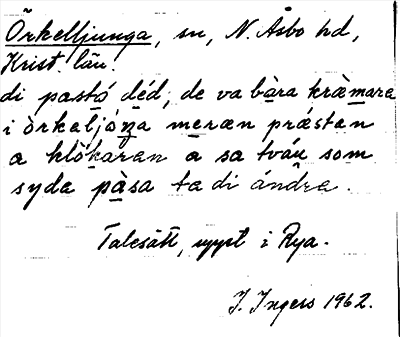 Örkelljunga, sn, N. Åsbo hd,
Krist. län.
di pastó déd, de va bàra kràmara
i òrkaljóṉa meræn prǽstan
a klòkaran a sa tváu som
syda pàsa ta di ándra.
Talesätt, uppt i Rya.
I. Ingers 1962.